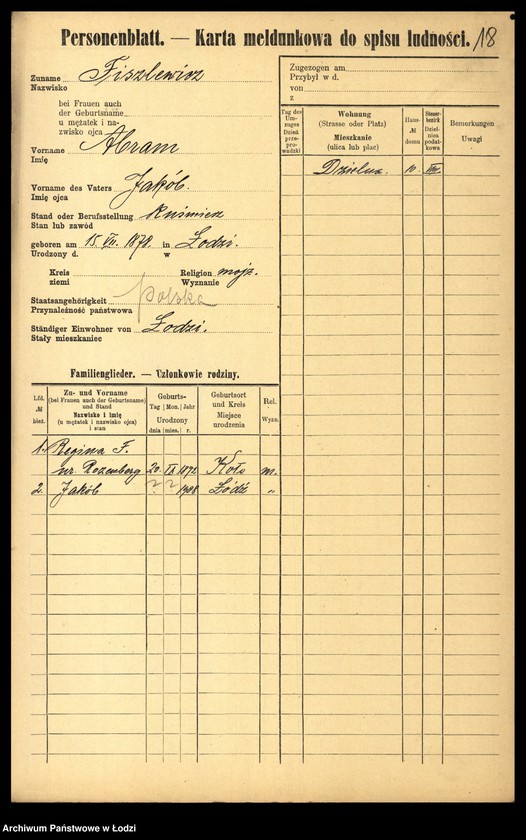 Personenblatt. — Karta meldunkowa do spisu ludności. 18
Zuname Fiszlewicz
Nazwisko
bei Frauen auch
der Geburtsname
u mężatek i na-
zwisko ojca
Vorname Abram
Imię
Vorname des Vaters Jakób.
Imię ojca
Stand oder Berufsstellung Kuśmierz
Stan lub zawód
geboren am 15. VII. 187 in Łodzi.
Urodzony d. w
Kreis
ziemi
Religion mojż.
Wyznanie
Staatsangehörigkeit Polska
Przynależność państwowa
Ständiger Einwohner von Łodzi.
Stały mieszkaniec
Familienglieder. — Członkowie rodziny.
Lfd. № bież.
Zu- und Vorname
(bei Frauen auch der Geburtsname)
und Stand
Nazwisko i imię
(u mężatek, nazwisko ojca)
i stan
Geburts-
Tag Mon. Jahr
Urodzony
dnia mies. r.
Geburtsort
und Kreis
Miejsce
urodzenia
Rel.
Wyzn.
1. Regina F.
ur. Rozenberg 20 IX 1872 Koło m.
2. Jakób ? ? 1908 Łódź "
Zugezogen am
Przybył w d.
von
z
Tag des
Um-
zuges
Dzień
prze-
prowadzki
Wohnung
(Strasse oder Platz)
Mieszkanie
(ulica lub plac)
Haus-
№
domu
Steuer-
bezirk
Dziel-
nica
podat-
kowa
Bemerkungen
Uwagi
Dzielna. 10. VIII.
Archiwum Państwowe w Łodzi